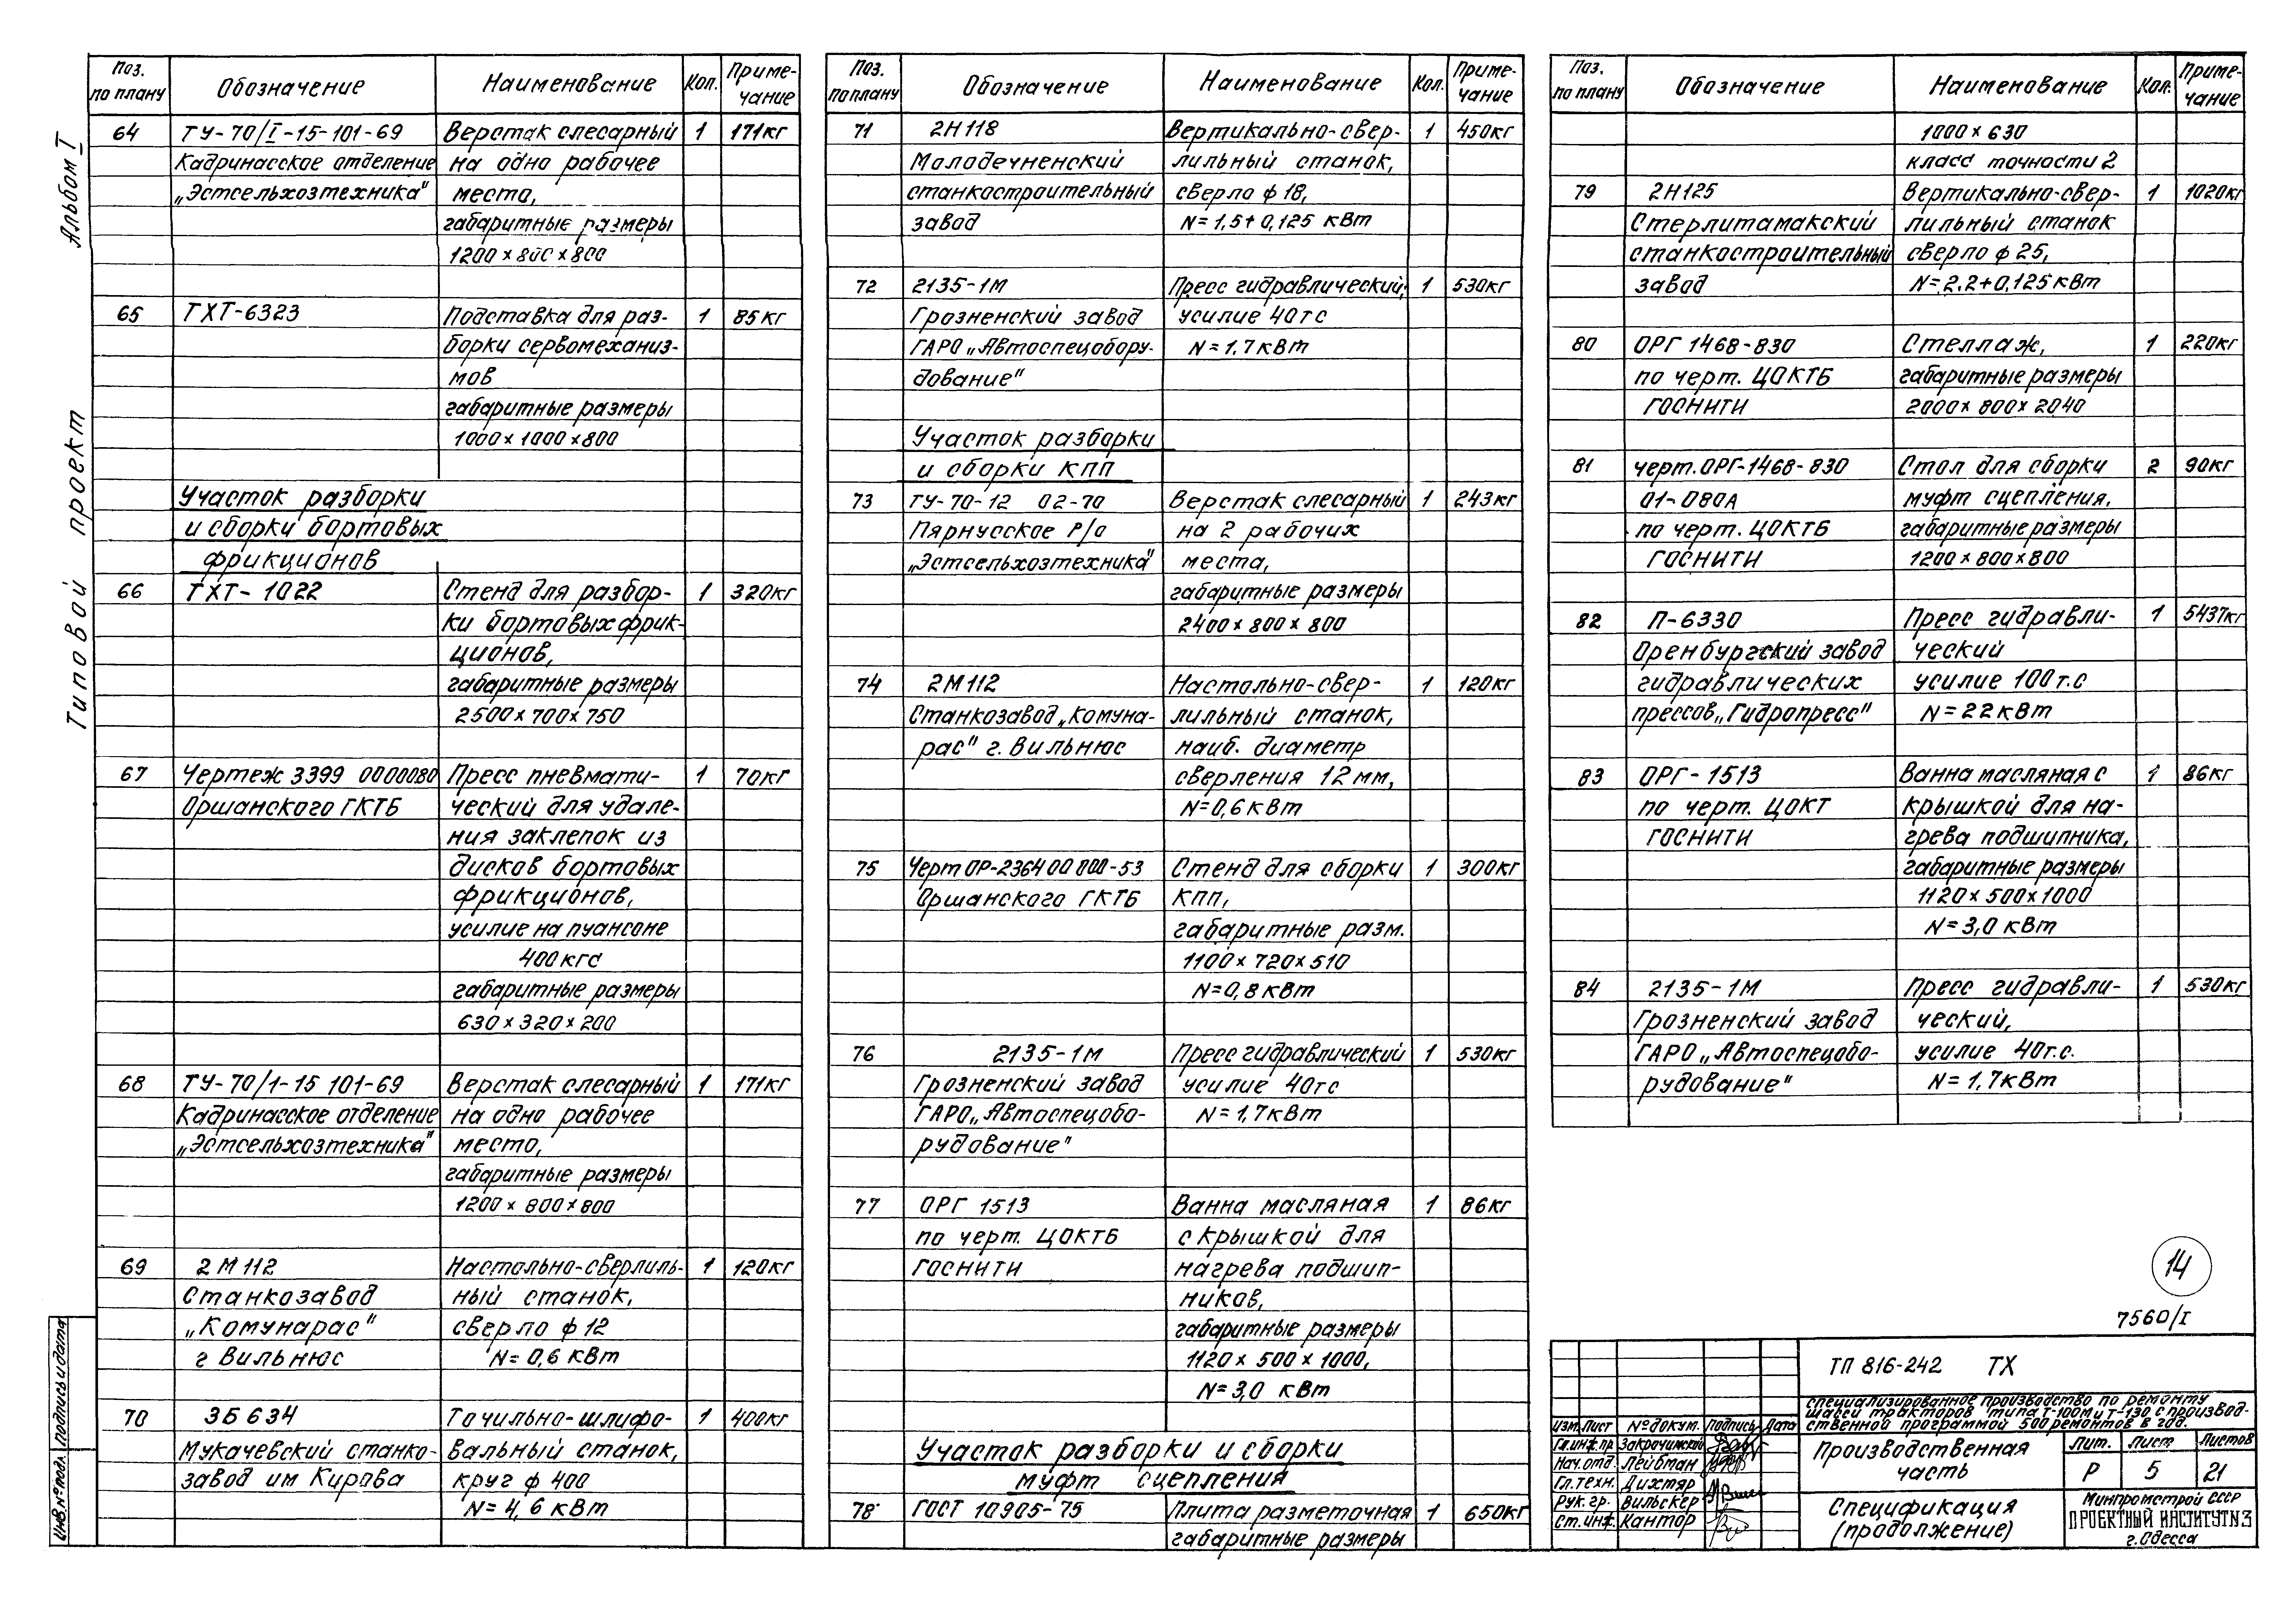 Альбом I
Типовой проект
Инв. № подл.
Подпись и дата
Поз. по плану
Обозначение
Наименование
Кол.
Приме-
чание
64 ТУ-70/I-15-101-69 Верстак слесарный 1 171кг
Кадринасское отделение на одно рабочее
„Эстсельхозтехника" место,
габаритные размеры
1200×800×800
65 ТХТ-6323 Подставка для раз- 1 85кг
борки сервомеханиз-
мов
габаритные размеры
1000×1000×800
Участок разборки
и сборки бортовых
фрикционов
66 ТХТ-1022 Стенд для разбор- 1 320кг
ки бортовых фрик-
ционов,
габаритные размеры
2500×700×750
67 Чертеж 3399 0000080 Пресс пневмати- 1 70кг
Оршанского ГКТБ ческий для удале-
ния заклепок из
дисков бортовых
фрикционов,
усилие на пуансоне
400кгс
габаритные размеры
630×320×200
68 ТУ-70/1-15 101-69 Верстак слесарный 1 171кг
Кадринасское отделение на одно рабочее
„Эстсельхозтехника" место,
габаритные размеры
1200×800×800
69 2М112 Настольно-сверлиль- 1 120кг
Станкозавод ный станок,
„Комунарас" сверло ф 12
г Вильнюс N=0,6 кВт
70 3Б634 Точильно-шлифо- 1 400кг
Мукачевский станко- вальный станок,
завод им Кирова круг ф 400
N=4,6 кВт
Поз. по плану
Обозначение
Наименование
Кол.
Приме-
чание
71 2Н118 Вертикально-свер- 1 450кг
Молодечненский лильный станок,
станкостроительный сверло ф 18,
завод N=1,5+0,125 кВт
72 2135-1М Пресс гидравлический, 1 530кг
Грозненский завод усилие 40тс
ГАРО „Автоспецобору- N=1,7кВт
дование"
Участок разборки
и сборки КПП
73 ТУ-70-12 02-70 Верстак слесарный 1 243кг
Пярнусское Р/о на 2 рабочих
„Эстсельхозтехника" места,
габаритные размеры
2400×800×800
74 2М112 Настольно-свер- 1 120кг
Станкозавод „Комуна- лильный станок,
рас" г. Вильнюс наиб. диаметр
сверления 12мм,
N=0,6кВт
75 Черт ОР-2364 00 000-53 Стенд для сборки 1 300кг
Оршанского ГКТБ КПП,
габаритные разм.
1100×720×510
N=0,8кВт
76 2135-1М Пресс гидравлический 1 530кг
Грозненский завод усилие 40тс
ГАРО „Автоспецобо- N=1,7кВт
рудование"
77 ОРГ 1513 Ванна масляная 1 86кг
по черт. ЦОКТБ с крышкой для
ГОСНИТИ нагрева подшип-
ников,
габаритные размеры
1120×500×1000,
N=3,0 кВт
Участок разборки и сборки
муфт сцепления
78 ГОСТ 10905-75 Плита разметочная 1 650кг
габаритные размеры
Поз. по плану
Обозначение
Наименование
Кол.
Приме-
чание
1000×630
класс точности 2
79 2Н125 Вертикально-свер- 1 1020кг
Стерлитамакский лильный станок
станкостроительный сверло ф 25,
завод N=2.2+0,125кВт
80 ОРГ 1468-830 Стеллаж, 1 220кг
по черт. ЦОКТБ габаритные размеры
ГОСНИТИ 2000×800×2040
81 черт.ОРГ-1468-830 Стол для сборки 2 90кг
01-080А муфт сцепления,
по черт. ЦОКТБ габаритные размеры
ГОСНИТИ 1200×800×800
82 П-6330 Пресс гидравли- 1 5437кг
Оренбургский завод ческий
гидравлических усилие 100т.с
прессов „Гидропресс" N=22кВт
83 ОРГ-1513 Ванна масляная с 1 86кг
по черт. ЦОКТ крышкой для на-
ГОСНИТИ грева подшипника,
габаритные размеры
1120×500×1000
N=3,0 кВт
84 2135-1М Пресс гидравли- 1 530кг
Грозненский завод ческий,
ГАРО „Автоспецобо- усилие 40т.с.
рудование" N=1,7кВт
14
7560/I
ТП 816-242 ТХ
специализированное производство по ремонту
шасси тракторов типа Т-100М и Т-130 с производ-
ственной программой 500 ремонтов в год.
Изм. Лист № докум. Подпись Дата
Гл.инж.пр Закрочимский
Нач.отд. Лейбман
Гл.техн. Дихтяр
Рук.гр. Вильскер
Ст.инж. Кантор
Производственная
часть
Лит. Лист Листов
Р 5 21
Спецификация
(продолжение)
Минпромстрой СССР
ПРОЕКТНЫЙ ИНСТИТУТ№3
г.Одесса